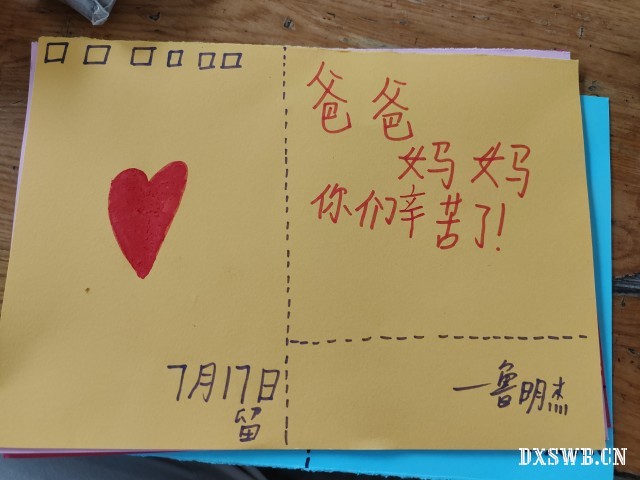 爸爸
妈妈
你们辛苦了!
7月17日
留
一鲁明杰
DXSWB.CN